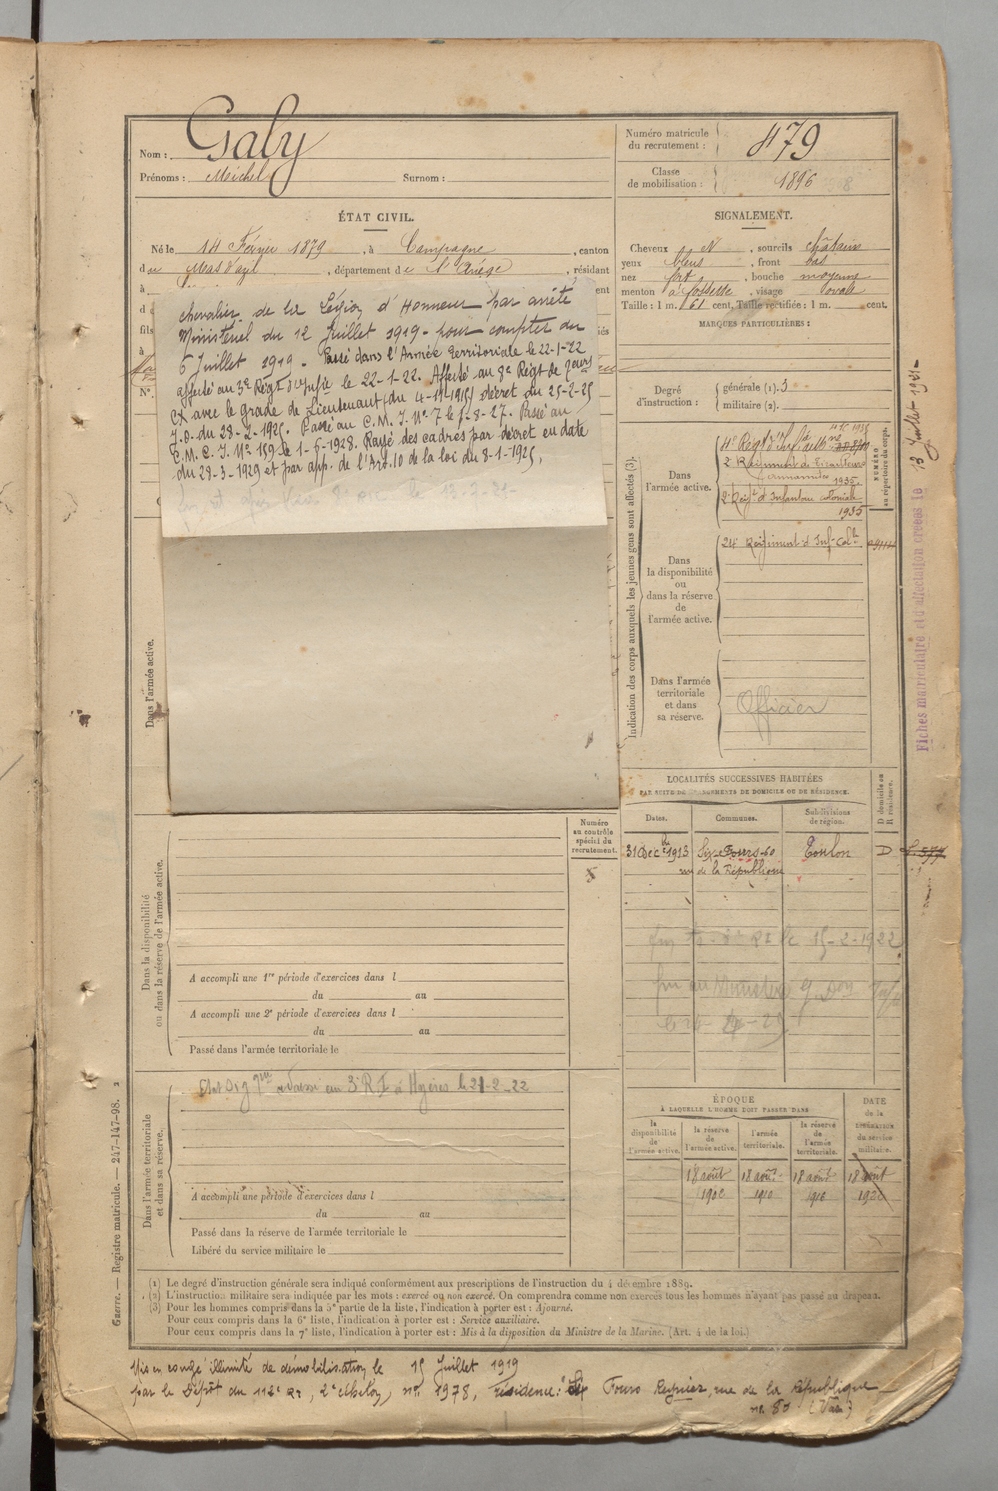 Nom : Galy
Prénoms : Michel Surnom :
Numéro matricule du recrutement : 479
Classe de mobilisation : 1896
ÉTAT CIVIL.
Né le 14 Février 1879, à Campagne, canton
du Mas d'azil, département de l'Ariège, résidant
à
SIGNALEMENT.
Cheveux N, sourcils châtain
yeux bleus, front bas
nez fort, bouche moyenne
menton à fossette, visage ovale
Taille : 1 m. 61 cent. Taille rectifiée : 1 m. cent.
MARQUES PARTICULIÈRES :
chevalier de la Légion d'Honneur par arrêté
Ministériel du 12 Juillet 1919 - pour compter du
6 Juillet 1919 - Passé dans l'Armée territoriale le 22-1-22
affecté au 3e Régt d'Infie le 22-1-22. Affecté au 8e Régt de
avec le grade de Lieutenant (du 4-11-1915) décret du 25-2-25
J.O. du 28-2-1925. Passé au C.M.I. No 7 le 1-8-27. Passé au
C.M.C.I. No 159 le 1-6-1928. Rayé des cadres par décret en date
du 28-3-1929 et par app. de l'Art. 10 de la loi du 8-1-1925.
Degré d'instruction :
générale (1). 3
militaire (2).
Indication des corps auxquels les jeunes gens sont affectés (3).
NUMÉRO au répertoire du corps.
Dans l'armée active.
4e Régt d'Infie de
2e Régiment de Tirailleurs
1935
2e Régt d'Infanterie coloniale
1935
Dans la disponibilité ou dans la réserve de l'armée active.
24e Régiment d'Inf. Colle
Dans l'armée territoriale et dans sa réserve.
Officier
Fiches matriculaire et d'affectation créées le 13 Juillet 1921
LOCALITÉS SUCCESSIVES HABITÉES
PAR SUITE DE CHANGEMENTS DE DOMICILE OU DE RÉSIDENCE.
Dates. Communes. Subdivisions de région. D domicile ou R résidence.
31 Decbre 1913 Six-Fours-60 Toulon D
rue de la République
15-2-1922
Dans l'armée active.
Numéro au contrôle spécial du recrutement.
Dans la disponibilité ou dans la réserve de l'armée active.
A accompli une 1re période d'exercices dans l
du au
A accompli une 2e période d'exercices dans l
du au
Passé dans l'armée territoriale le
adressé au 3e R.I. à Hyères le 21-2-22
Dans l'armée territoriale et dans sa réserve.
A accompli une période d'exercices dans l
du au
Passé dans la réserve de l'armée territoriale le
Libéré du service militaire le
ÉPOQUE
À LAQUELLE L'HOMME DOIT PASSER DANS
DATE de la LIBÉRATION du service militaire.
la disponibilité de l'armée active. la réserve de l'armée active. l'armée territoriale. la réserve de l'armée territoriale.
18 août 18 août 18 août 18 août
1910 1916
Guerre. — Registre matricule. — 247-147-98.
(1) Le degré d'instruction générale sera indiqué conformément aux prescriptions de l'instruction du 4 décembre 1889.
(2) L'instruction militaire sera indiquée par les mots : exercé ou non exercé. On comprendra comme non exercés tous les hommes n'ayant pas passé au drapeau.
(3) Pour les hommes compris dans la 5e partie de la liste, l'indication à porter est : Ajourné.
Pour ceux compris dans la 6e liste, l'indication à porter est : Service auxiliaire.
Pour ceux compris dans la 7e liste, l'indication à porter est : Mis à la disposition du Ministre de la Marine. (Art. 4 de la loi.)
Mis en congé illimité de démobilisation le 15 Juillet 1919
par le Dépôt du 112e RI, no 1978, résidence : Six Fours Reynier, rue de la République
no 80 (Var)